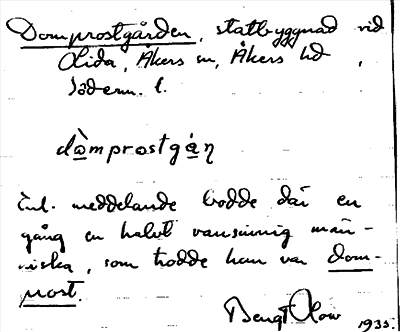 Domprostgården, statbyggnad vid
Olida, Åkers sn, Åkers hd,
Söderm. l.
dòmprostgån
Enl. meddelande bodde där en
gång en halvt vansinnig män-
niska, som trodde han var dom-
prost.
Bengt Olow 1935.